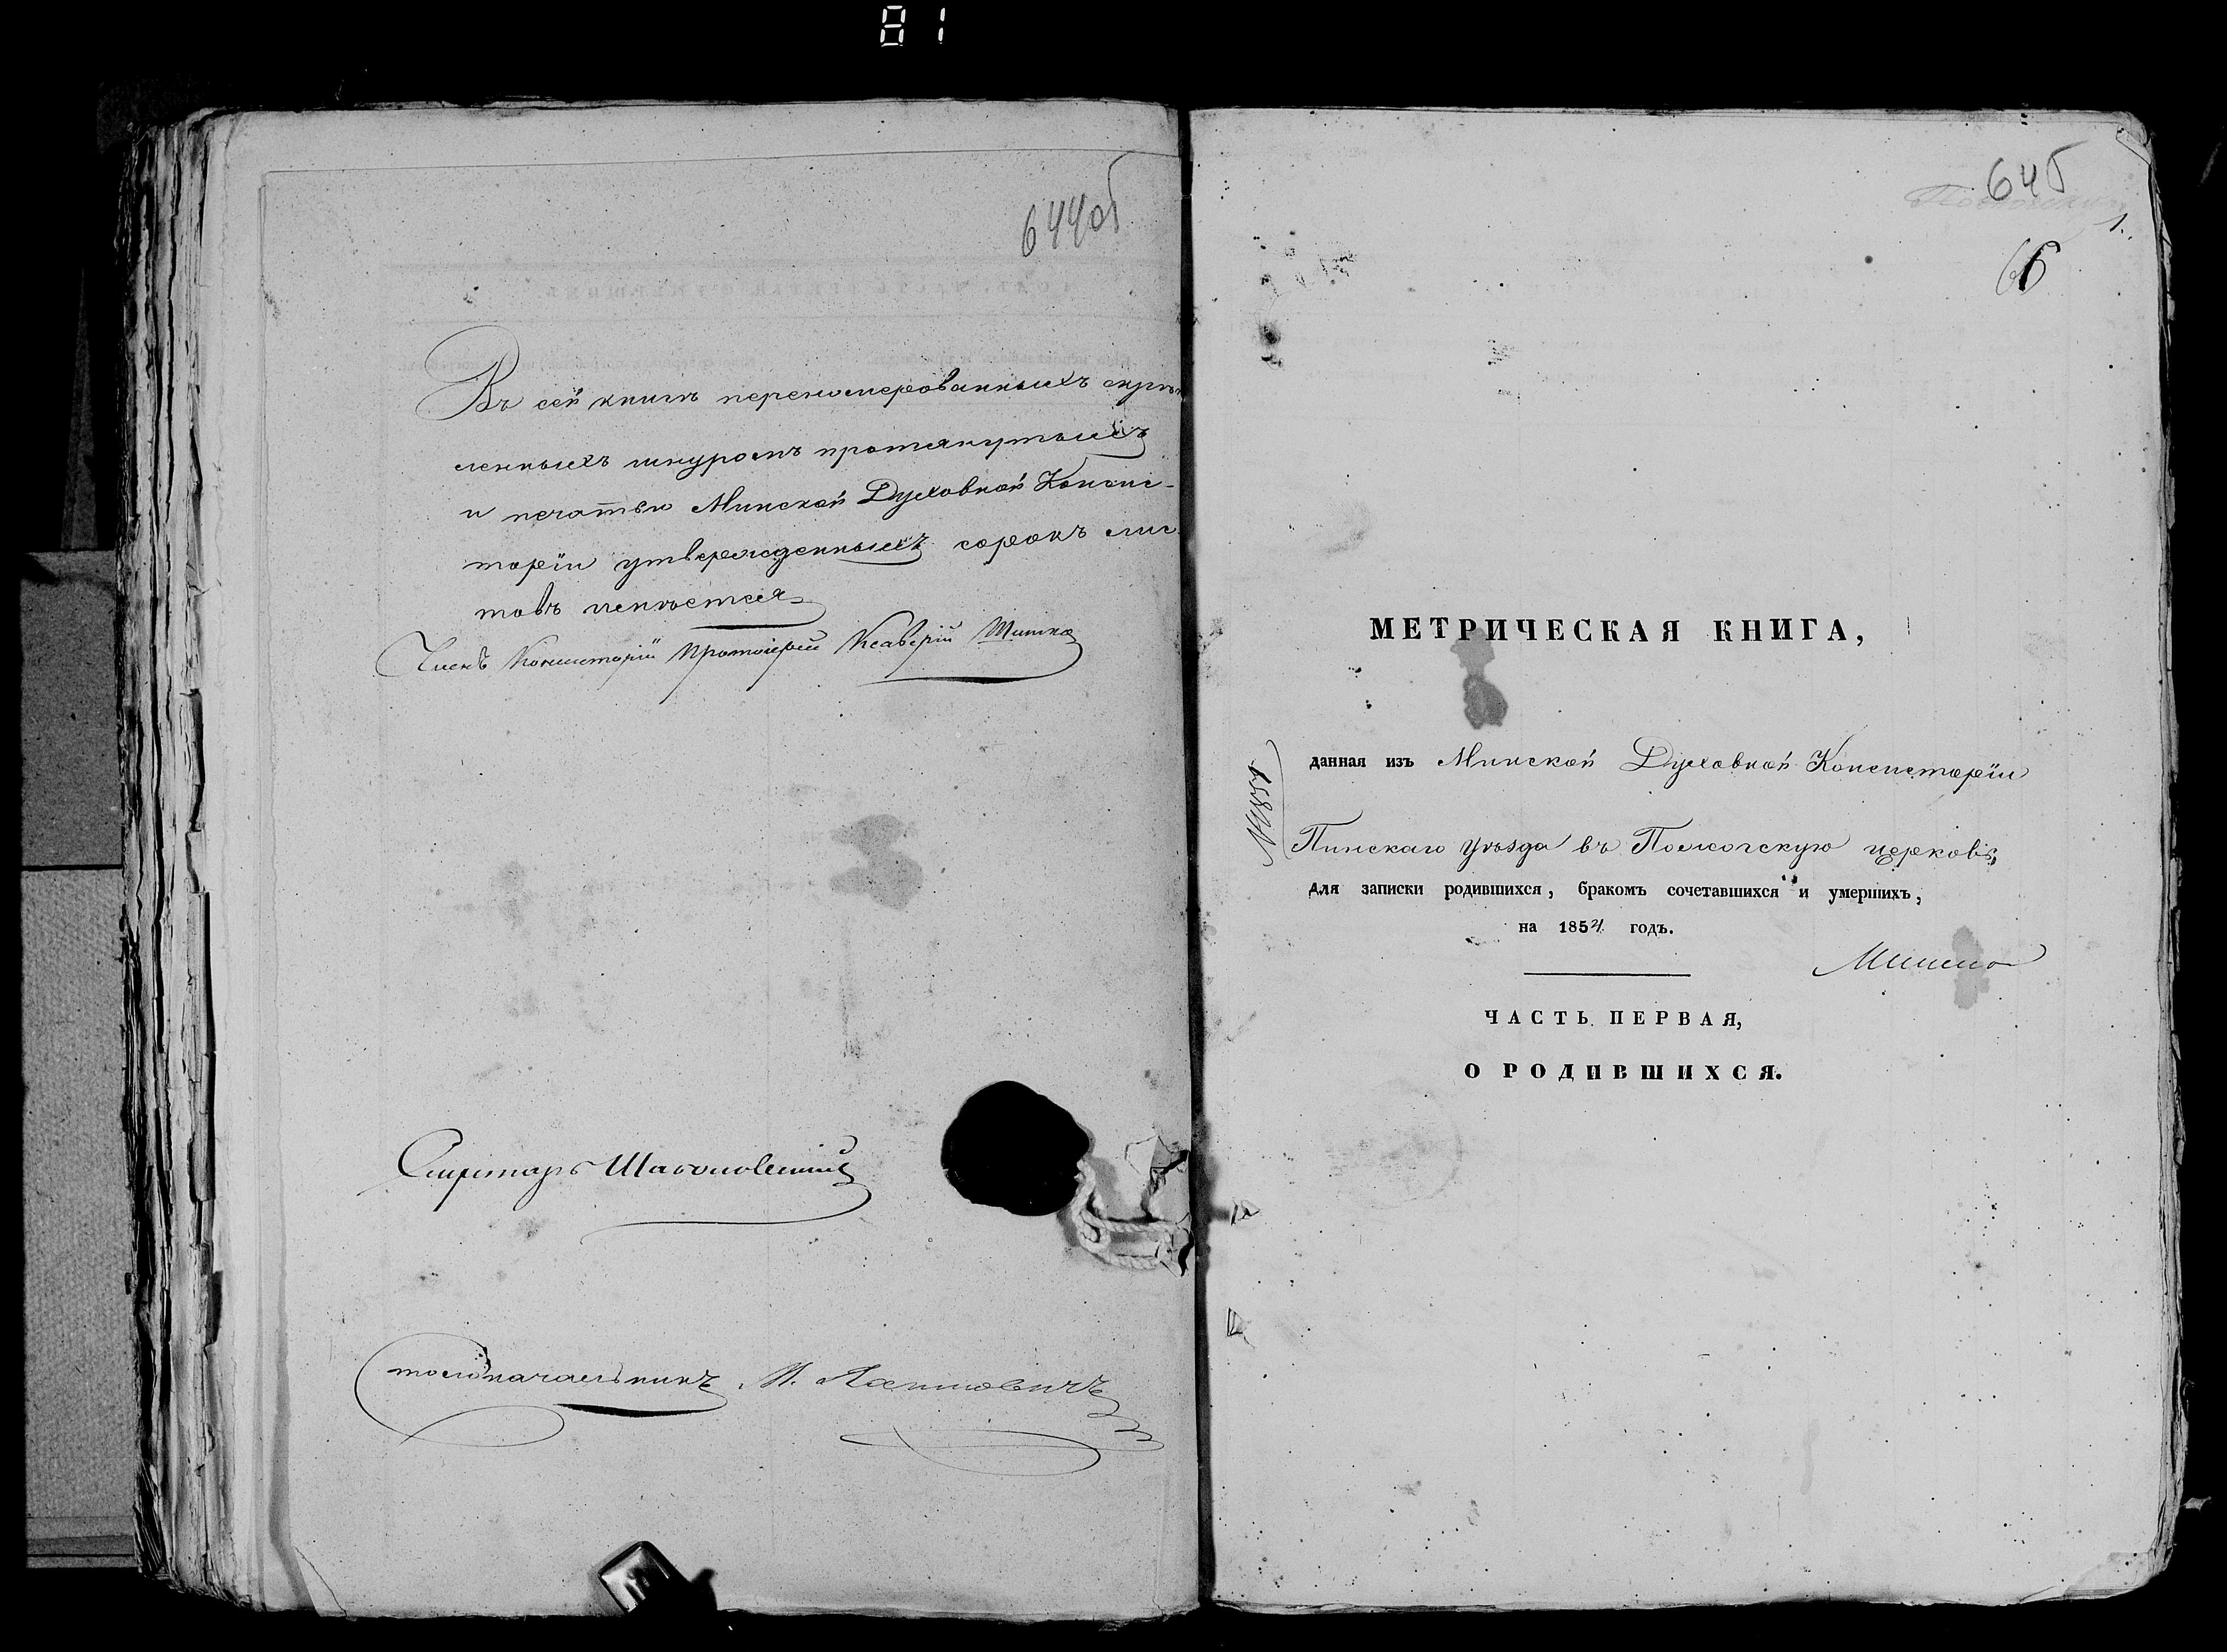 81
644об
Въ сей книгѣ перенумерованныхъ скрѣп
ленныхъ шнуромъ протянутыхъ
и печатью Минской Духовной Консис-
торіи утвержденныхъ сорокъ лис
товъ имѣется
Членъ Консисторіи Протоіерей Ксаверій
Секретарь
Столоначальникъ М.
645
1.
МЕТРИЧЕСКАЯ КНИГА,
данная изъ Минской Духовной Консисторіи
Пинскаго Уѣзда въ церковь,
для записки родившихся, бракомъ сочетавшихся и умершихъ,
на 1854 годъ.
ЧАСТЬ ПЕРВАЯ,
О РОДИВШИХСЯ.